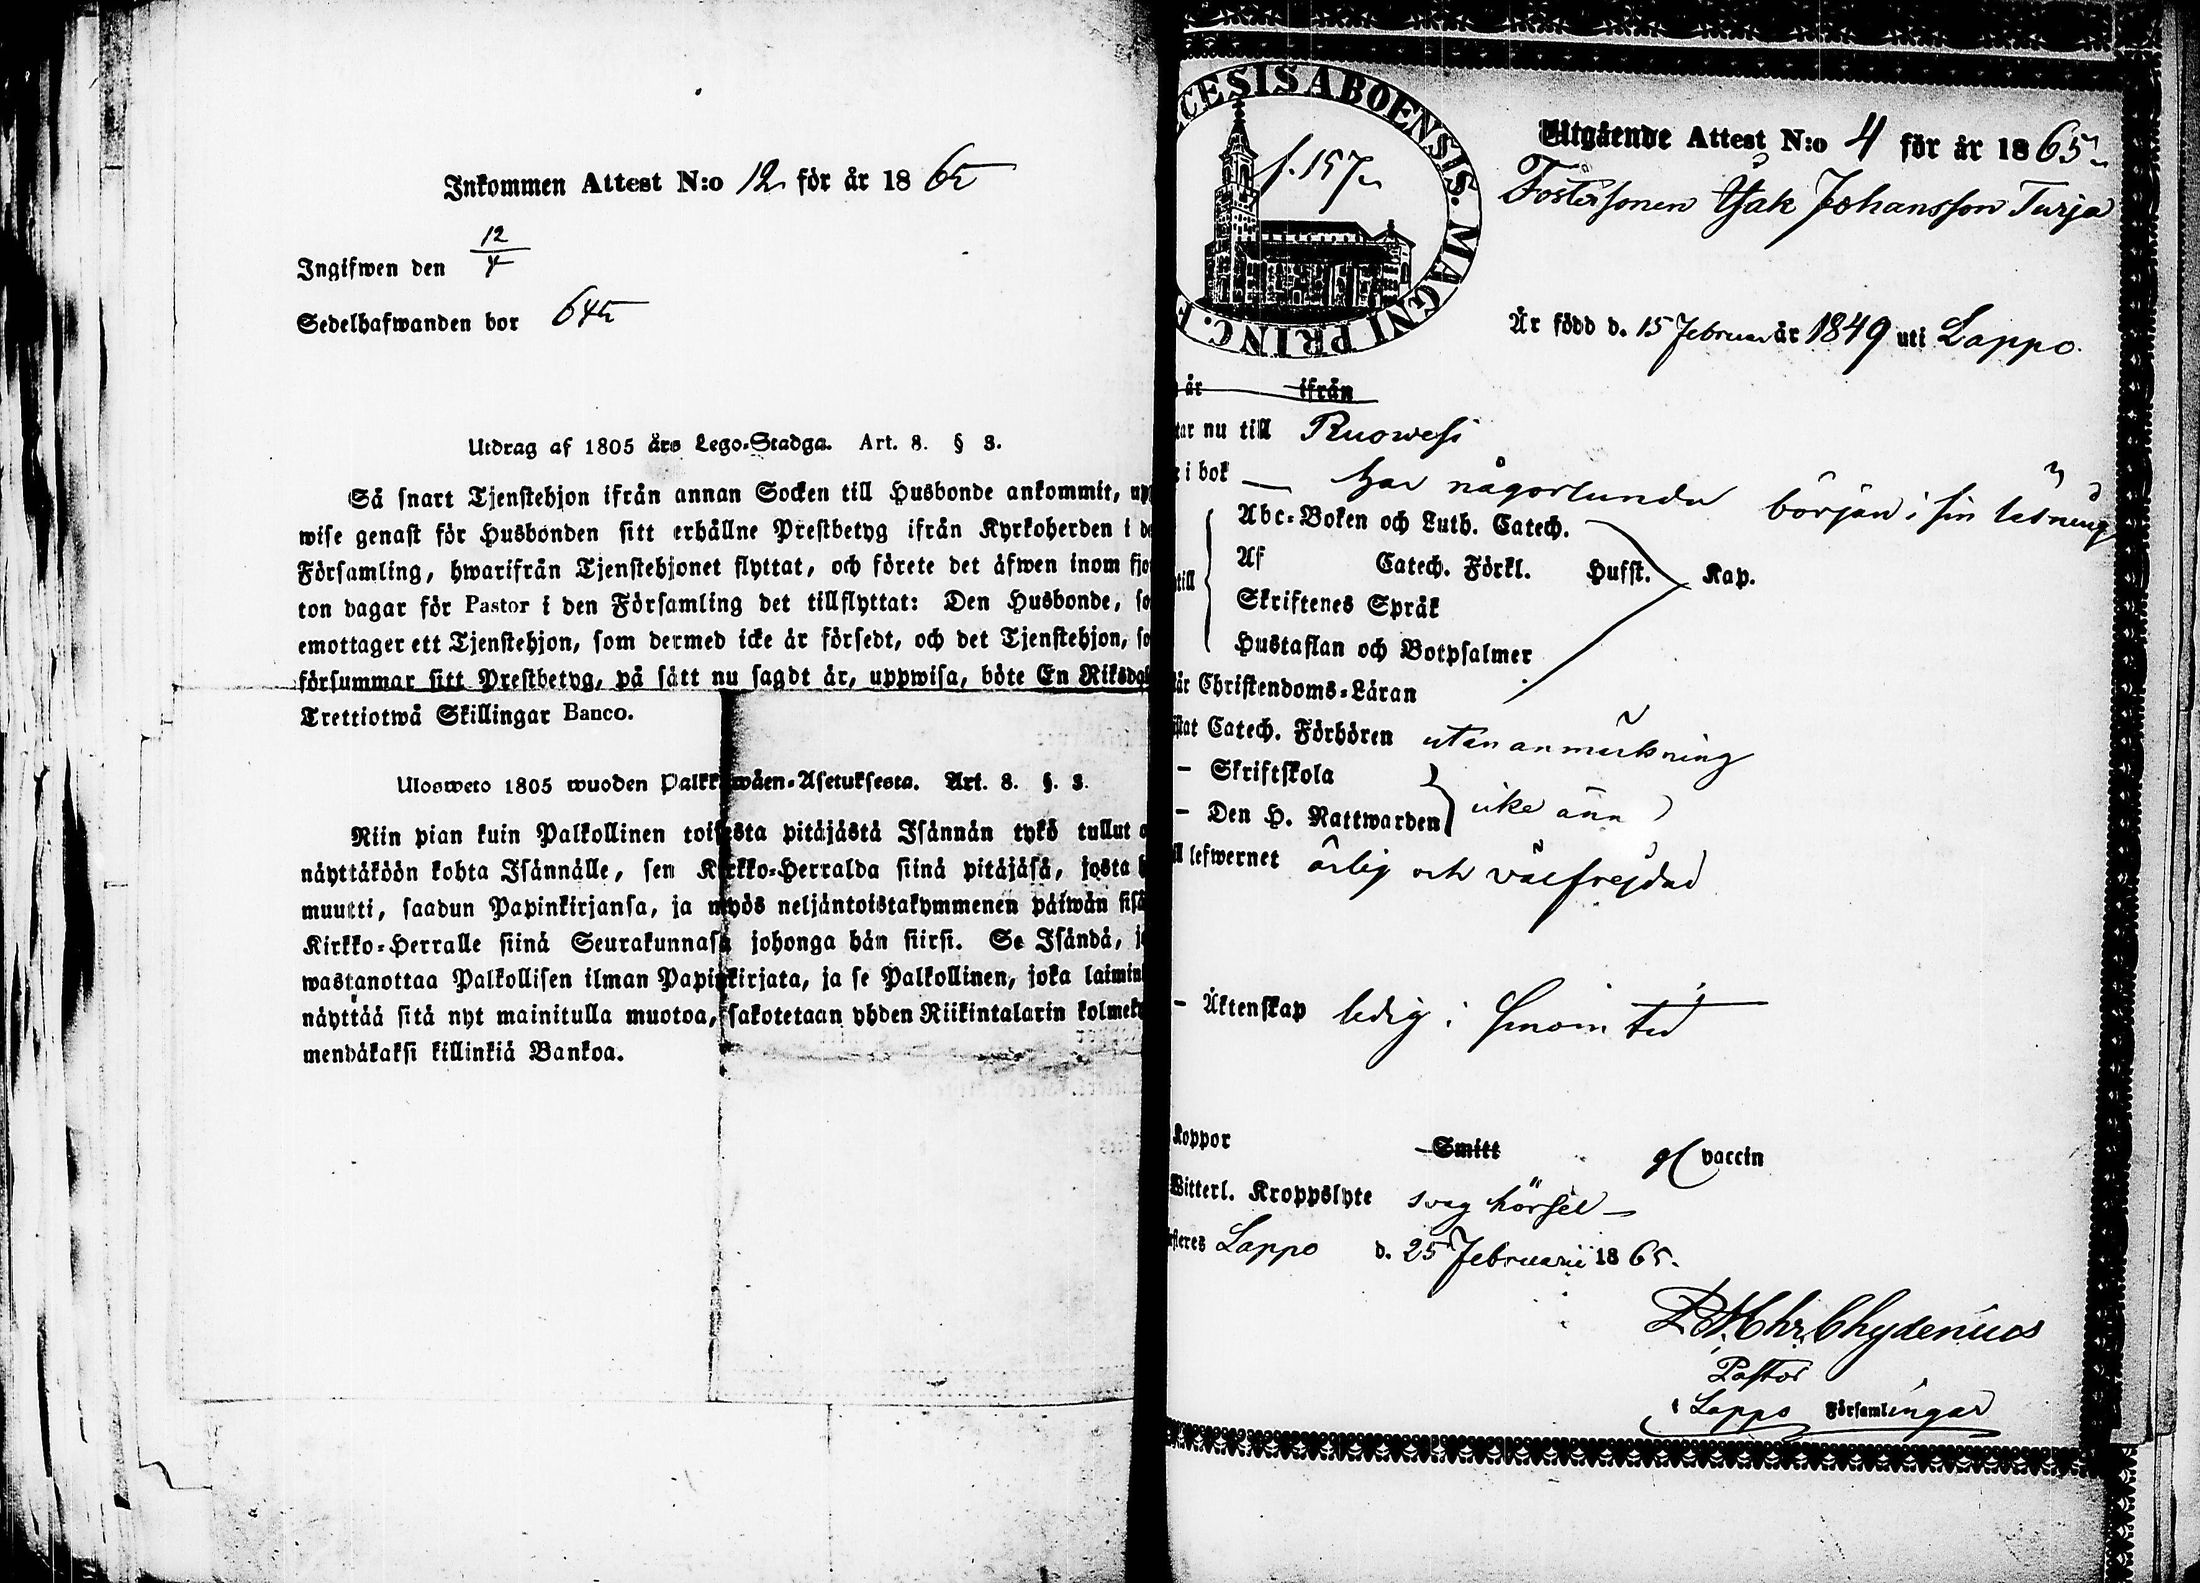 Inkommen Attest N:o 12 för år 1865
Ingifwen den 12/4
Sedelhafwanden bor 645
Utdrag af 1805 års Lego-Stadga. Art. 8. § 3.
Så snart Tjenstehjon ifrån annan Socken till Husbonde ankommit, up
wise genast för Husbonden sitt erhållne Prestbetyg ifrån Kyrkoherden i de
Församling, hwarifrån Tjenstehjonet flyttat, och förete det äfwen inom fjo
ton dagar för Pastor i den Församling det tillflyttat: Den Husbonde, so
emottager ett Tjenstehjon, som dermed icke är försedt, och det Tjenstehjon, so
försummar sitt Prestbetyg, på sätt nu sagdt är, uppwisa, böte En Riksdal
Trettiotwå Skillingar Banco.
Ulosweto 1805 wuoden Palkkawäen-Asetuksesta. Art. 8. §. 3.
Niin pian kuin Palkollinen toisesta pitäjästä Isännän tykö tullut o
näyttäköön kohta Isännälle, sen Kirkko-Herralda siinä pitäjäsä, josta h
muutti, saadun Papinkirjansa, ja myös neljäntoistakymmenen päiwän sisä
Kirkko-Herralle siinä Seurakunnasa johonga hän siirsi. Se Isändä, jo
wastanottaa Palkollisen ilman Papinkirjata, ja se Palkollinen, joka laimin
näyttää sitä nyt mainitulla muotoa, sakotetaan yhden Riikintalarin kolmeky
mendäkaksi killinkiä Bankoa.
CESIS ABOENSIS. MAGNI PRINC. F
f. 157
Utgående Attest N:o 4 för år 1865
Fostersonen Isak Johansson Turja
Är född d. 15 Februar är 1849 uti Lappo.
år ifrån
tar nu till Ruowesi
i bok — har någorlunda början i sin läsning
Abc-Boken och Luth. Catech.
Af Catech. Förkl. Husst. Kap.
till
Skriftenes Språk
Hustaflan och Botpsalmer
är Christendoms-Läran
stat Catech. Förhören utan anmärkning
– Skriftskola
– Den H. Nattwarden icke ännu
ll lefwernet ärlig och välfrejdad
– Äktenskap ledig i sinom tid
Koppor Smitt gl vaccin
Witterl. Kroppslyte svag hörsel —
steres Lappo d. 25 Februarii 1865.
Chydenius
Pastor
i Lappo Församlingar